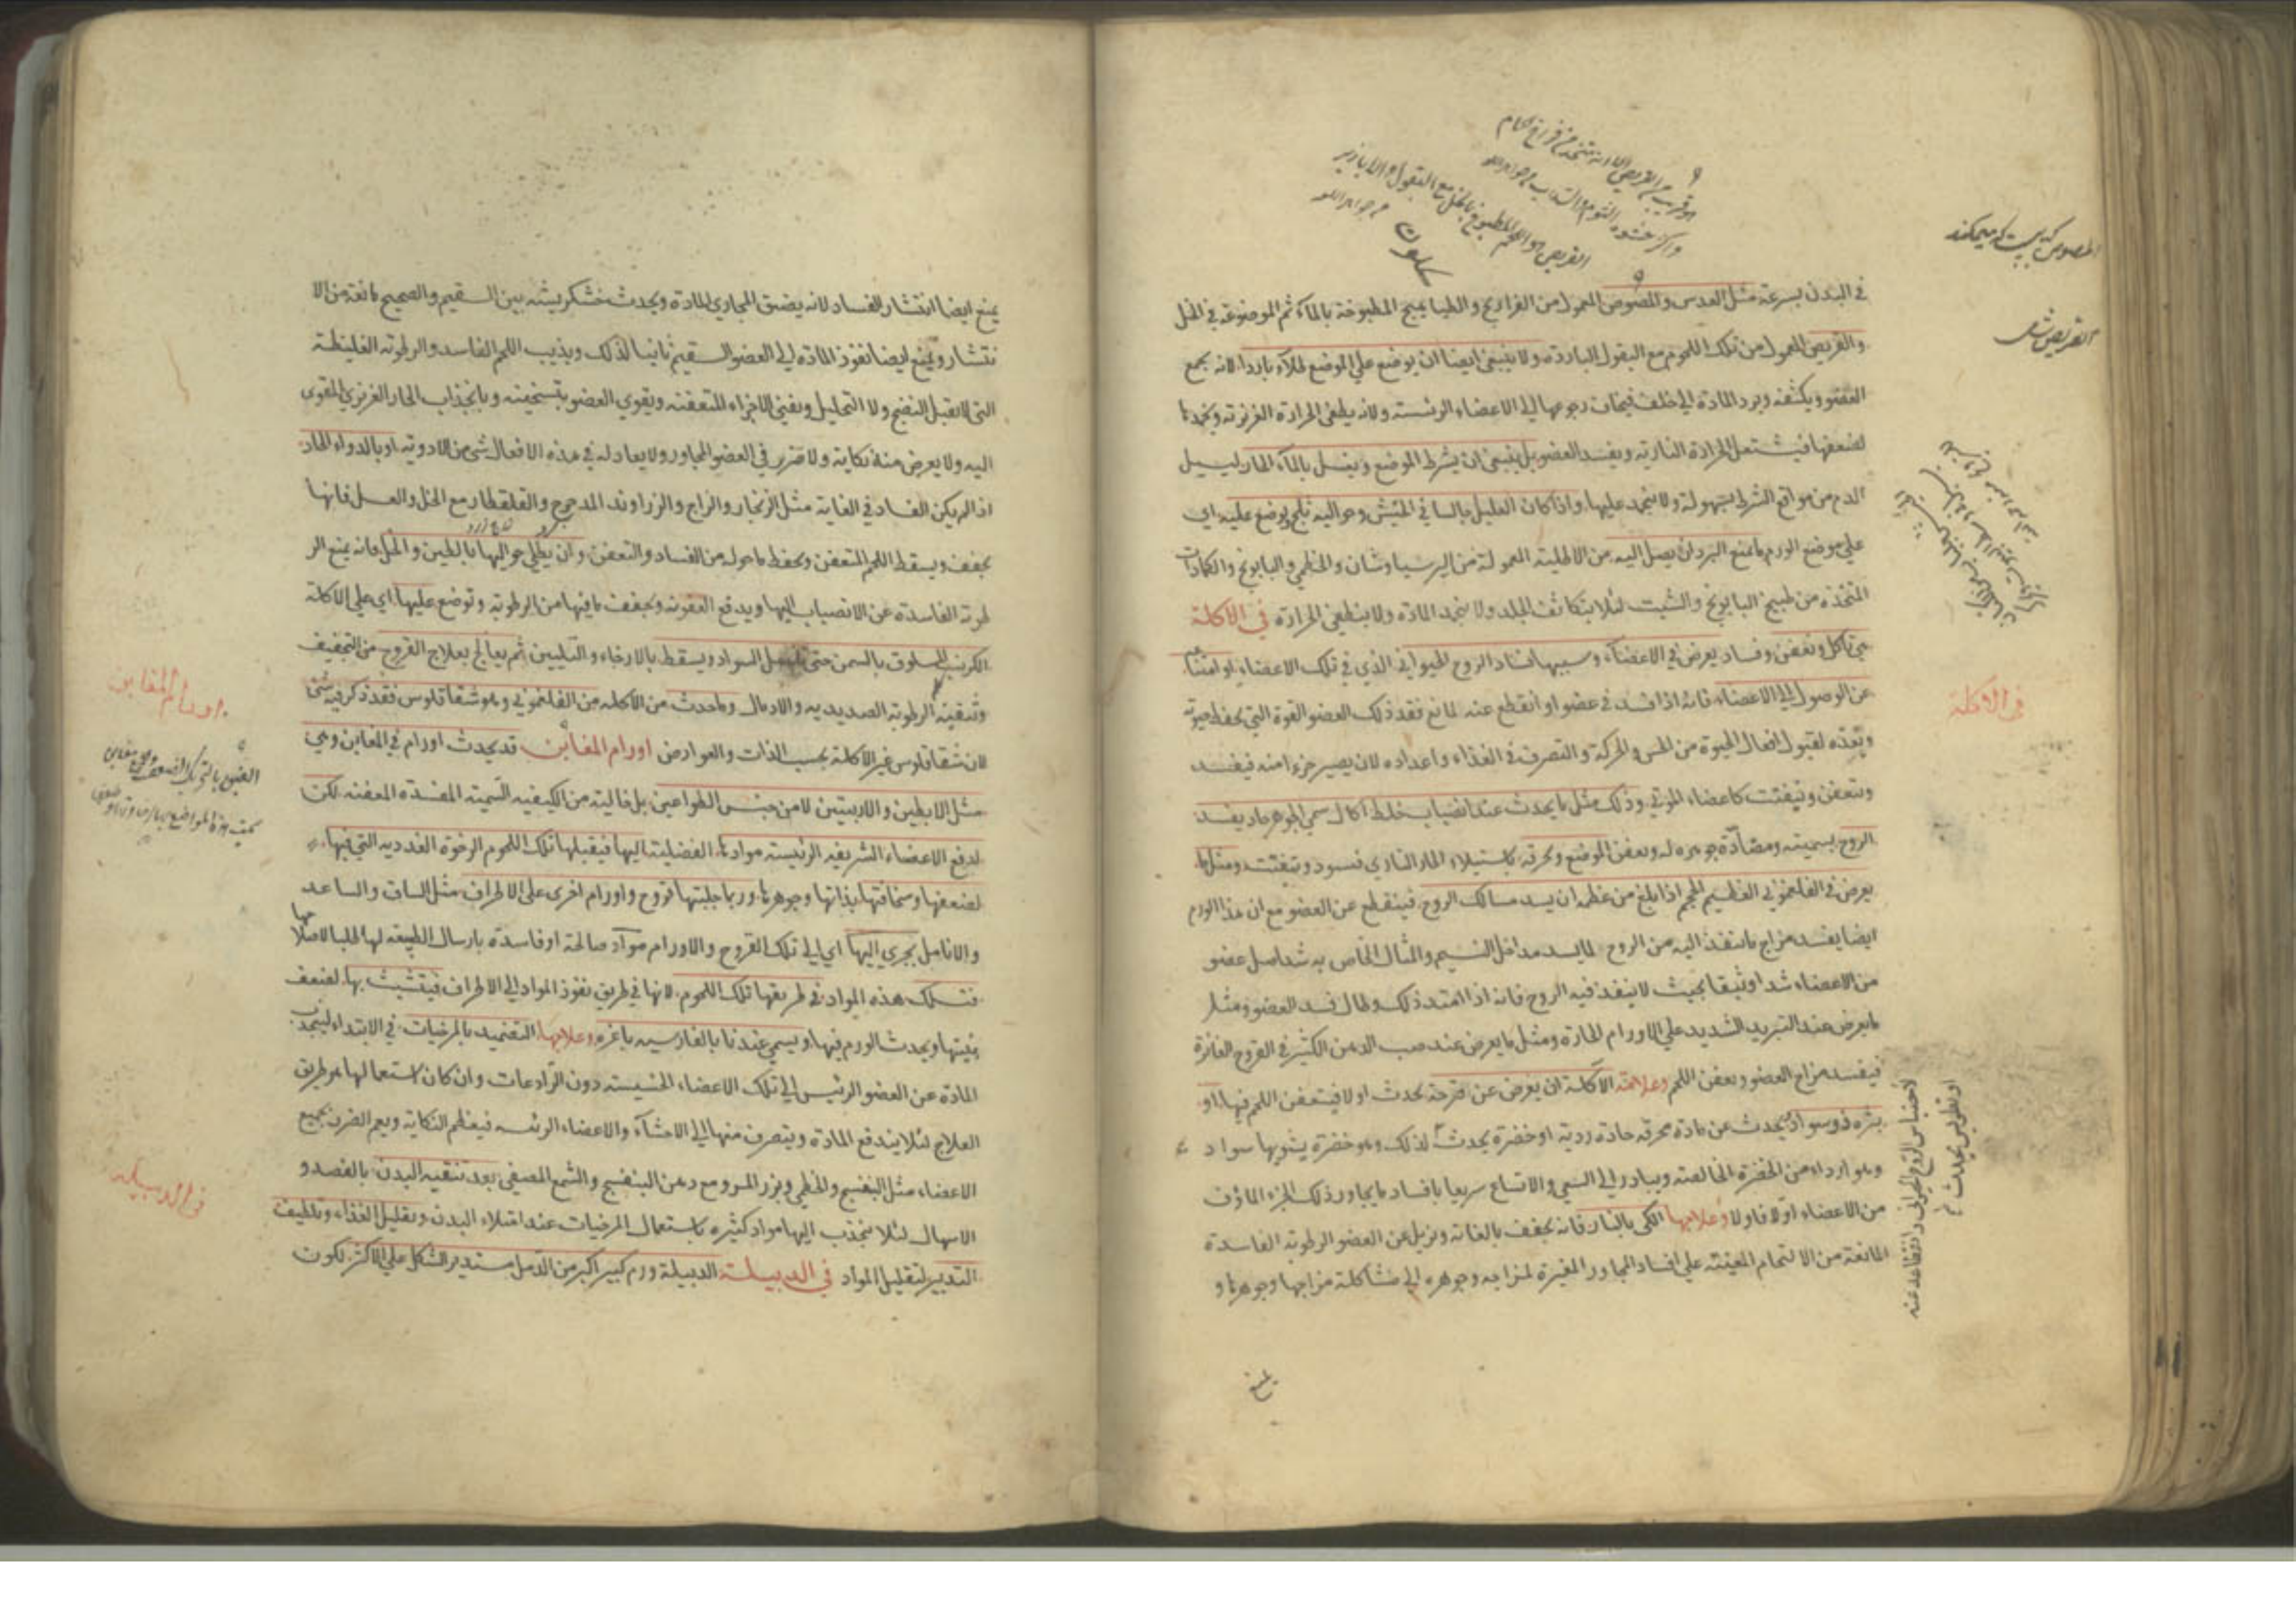 في البدن بسرعة مثل العدس والمصوص المعمول من الفراريج والطياهيج المطبوخة بالماء ثم الموضوعة في الخل
والقريص المعمول من تلك اللحوم مع البقول الباردة ولا ينبغي ايضا ان يوضع علي الموضع الماء باردا لانه يجمع
العضو ويكثفه ويرد المادة الي خلف فيخاف رجوعها الي الاعضاء الرئيسته ولانه يطفي الحرارة الغريزته ويخمدها
لضعفها فيشتعل الحرارة النارية ويفسد العضو بل ينبغي ان يشرط الموضع ويغسل بالماء الحار ليسيل
الدم من مواقع الشرط بسهولة ولا ينجمد عليها وان كان العليل جالسا في الخيش وحواليه ثلج ويوضع عليه اي
علي موضع الورم ما يمنع البرد ان يصل اليه من الاطلية المعمولة من البرسياوشان والخطمي والبابونج والكمادات
المتخذة من طبيخ البابونج والشبت لئلا يتكاثف الجلد ولا ينجمد المادة ولا ينطفي الحرارة في الاكلة
هي تاكل وتعفن وفساد يعرض في الاعضاء وسببها فساد الروح الحيواني الذي في تلك الاعضاء او امتناعه
عن الوصول الي الاعضاء فانه اذا فسد في عضو او انقطع عنه لمانع فقد ذلك العضو القوة التي يحفظ حيوته
وتعده لقبول افعال الحيوة من الحس والحركة والتصرف في الغذاء واعداده لان يصير جزءا منه فيفسد
ويتعفن ويتفتت كاعضاء الموتي وذلك مثل ما يحدث عند انصباب خلط اكال سمي الجوهر حاد يفسد
الروح بسميته ومضادة جوهره له ويعفن الموضع ويحرقه باستيلاء الحار الناري فيسود ويتفتت ومثل ما
يعرض في الفلغموني العظيم الحجم اذا بلغ من عظمه ان يسد مسالك الروح فينقطع عن العضو مع ان هذا الورم
ايضا يفسد مزاج ما ينفذ اليه من الروح لما يسد مداخل النسيم والمثال الخاص به شد اصل عضو
من الاعضاء شدا وثيقا بحيث لا ينفذ فيه الروح فانه اذا امتد ذلك وطال فسد العضو ومثل
ما يعرض عند التبريد الشديد علي الاورام الحارة ومثل ما يعرض عند صب الدهن الكثير في القروح الغائرة
فيفسد مزاج العضو ويعفن اللحم وعلامة الاكلة ان يعرض عن قرحة يحدث اولا فيتعفن اللحم فيها او
بثرة ذو سواد يحدث عن مادة محرقة حادة ردية او خضرة يحدث لذلك وهو خضرة يشوبها سواد
وهو اردا من الخضرة الخالصة ويبادر الي السعي والاتساع سريعا بافساد ما يجاور ذلك الجزء الماؤف
من الاعضاء اولا فاولا وعلاجها الكي بالنار فانه يجفف بالغاته ويزيل عن العضو الرطوبة الفاسدة
المانعة من الالتحام المعينة علي افساد المجاور المغيرة لمزاجه وجوهره الي مشاكلة مزاجها وجوهرها و
في الاكلة
لاحتباس الروح الحيواني وانقطاعه عنه
يمنع
يمنع ايضا انتشار الفساد لانه يضيق المجاري المادة ويحدث خشكريشه بين السقيم والصحيح مانعة من الا
نتشار ويمنع ايضا نفوذ المادة الي العضو السقيم ثانيا لذلك ويذيب اللحم الفاسد والرطوبة الغليظة
التي لا تقبل النضج ولا التحليل ويفني الاجزاء المتعفنة ويقوي العضو بتسخينه وبانجذاب الحار الغريزي المقوي
اليه ولا يعرض منه نكاية ولا ضرر في العضو المجاور ولا يعادله في هذه الافعال شئ من الادوية او بالدواء الحاد
اذا لم يكن الفساد في الغاية مثل الزنجار والزاج والزراوند المدحرج والقلقطار مع الخل والعسل فانها
يجفف ويسقط اللحم المتعفن ويحفظ ما حوله من الفساد والتعفن وان يطلي حواليها بالطين والخل فانه يمنع الر
طوبة الفاسدة عن الانصباب اليها ويدفع العفونة ويجفف ما فيها من الرطوبة وتوضع عليها اي علي الاكلة
الكرنب المسلوق بالسمن حتي السواد ويسقط بالارخاء والتليين ثم يعالج بعلاج القروح من التجفيف
وتنقية الرطوبة الصديدية والادمال وما حدث من الاكلة من الفلغموني وهو شقاقلوس فقد ذكر فيه شئ
لان شقاقلوس غير الاكلة بحسب الذات والعوارض اورام المغابن قد يحدث اورام في المغابن وهي
مثل الابطين والاربيتين لا من جنس الطواعين بل خالية من الكيفية السمية المفسدة المعفنة لكن
لدفع الاعضاء الشريفة الرئيسة موادها الفضلية اليها فيقبلها تلك اللحوم الرخوة الغددية التي فيها
لضعفها وسخافتها بذاتها وجوهرها وربما جلبتها قروح واورام اخري علي الاطراف مثل الساق والساعد
والانامل يجري اليها اي الي تلك القروح والاورام مواد صالحة او فاسدة بارسال الطبيعة لها طلبا لاصلاحها
فتسلك هذه المواد في طريقها تلك اللحوم لانها في طريق نفوذ المواد الي الاطراف فيتشبث بها لضعف
بنيتها ويحدث الورم فيها ويسمي عندنا بالفارسيه باغره وعلاجها التضميد بالمرخيات في الابتداء لينجذب
المادة عن العضو الرئيس الي تلك الاعضاء الخسيسته دون الرادعات وان كان استعمالها هو طريق
العلاج لئلا يندفع المادة وينصرف منها الي الاحشاء والاعضاء الرئسه فيعظم النكاية ويعم الضرر بجميع
الاعضاء مثل البنفسج والخطمي وبزر المرو مع دهن البنفسج والشمع المصفي بعد تنقيه البدن بالفصد و
الاسهال لئلا ينجذب اليها مواد كثيره باستعمال المرخيات عند امتلاء البدن وتقليل الغذاء وتلطيف
التدبير لتقليل المواد في الدبيلة الدبيلة ورم كبير اكبر من الدمل مستدير الشكل علي الاكثر لكون
اورام المغابن
في الدبيله